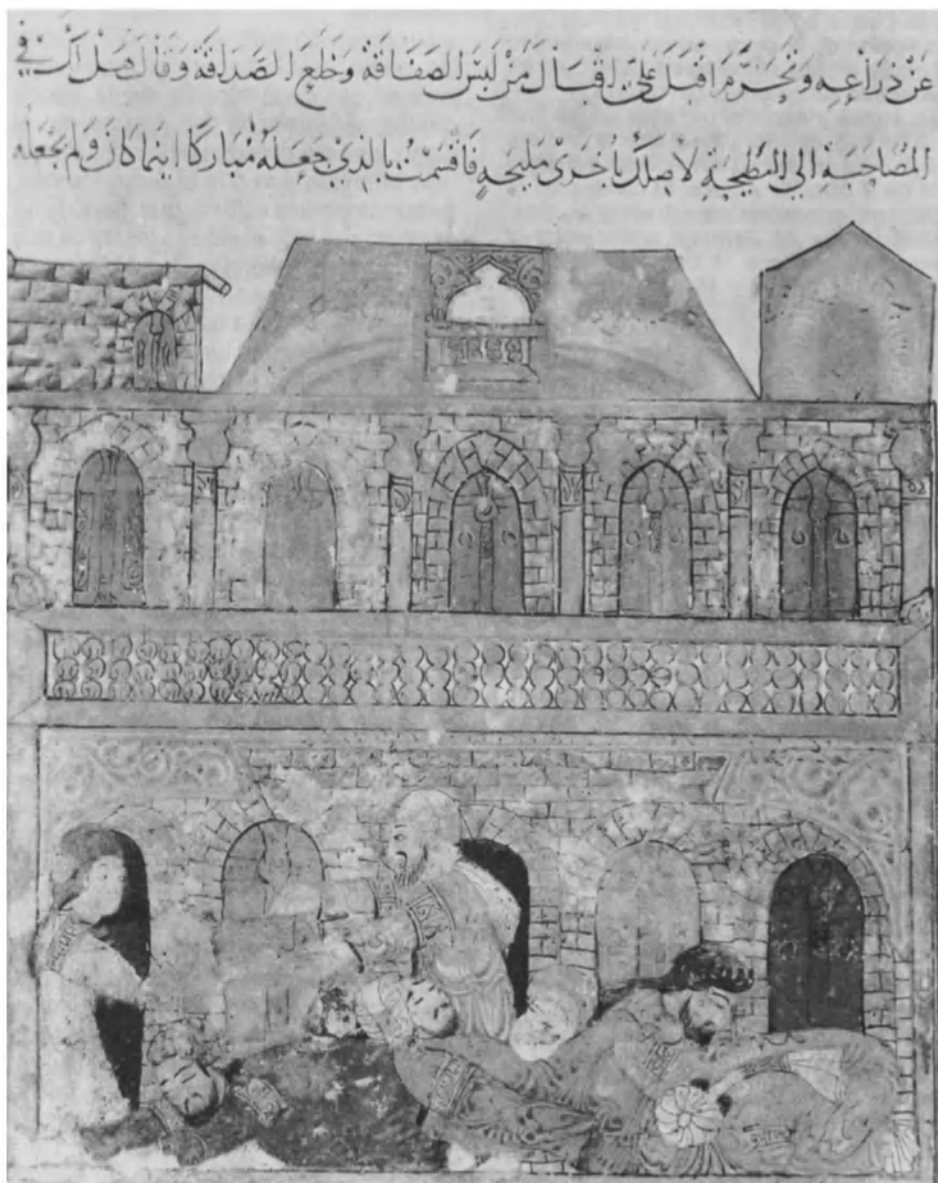 عَنْ ذِرَاعِهِ وَتَحَزَّمَ اقبَلَ عَلَيَّ اقبَالَ مَنْ لبِسَ الصَفَاقَةَ وَخَلَعَ الصَّدَاقَةَ وَقَالَ هَل لكَ في
المُصَاحَبَةِ الي البَطِيحَةِ لاصِلَكَ باُخرَىْ مَلِيحَةٍ فَاقسَمْتُ بِالذِيْ جَعَلَهُ مُبَاركًا اينمَا كانَ وَلم يجعَلْهُ